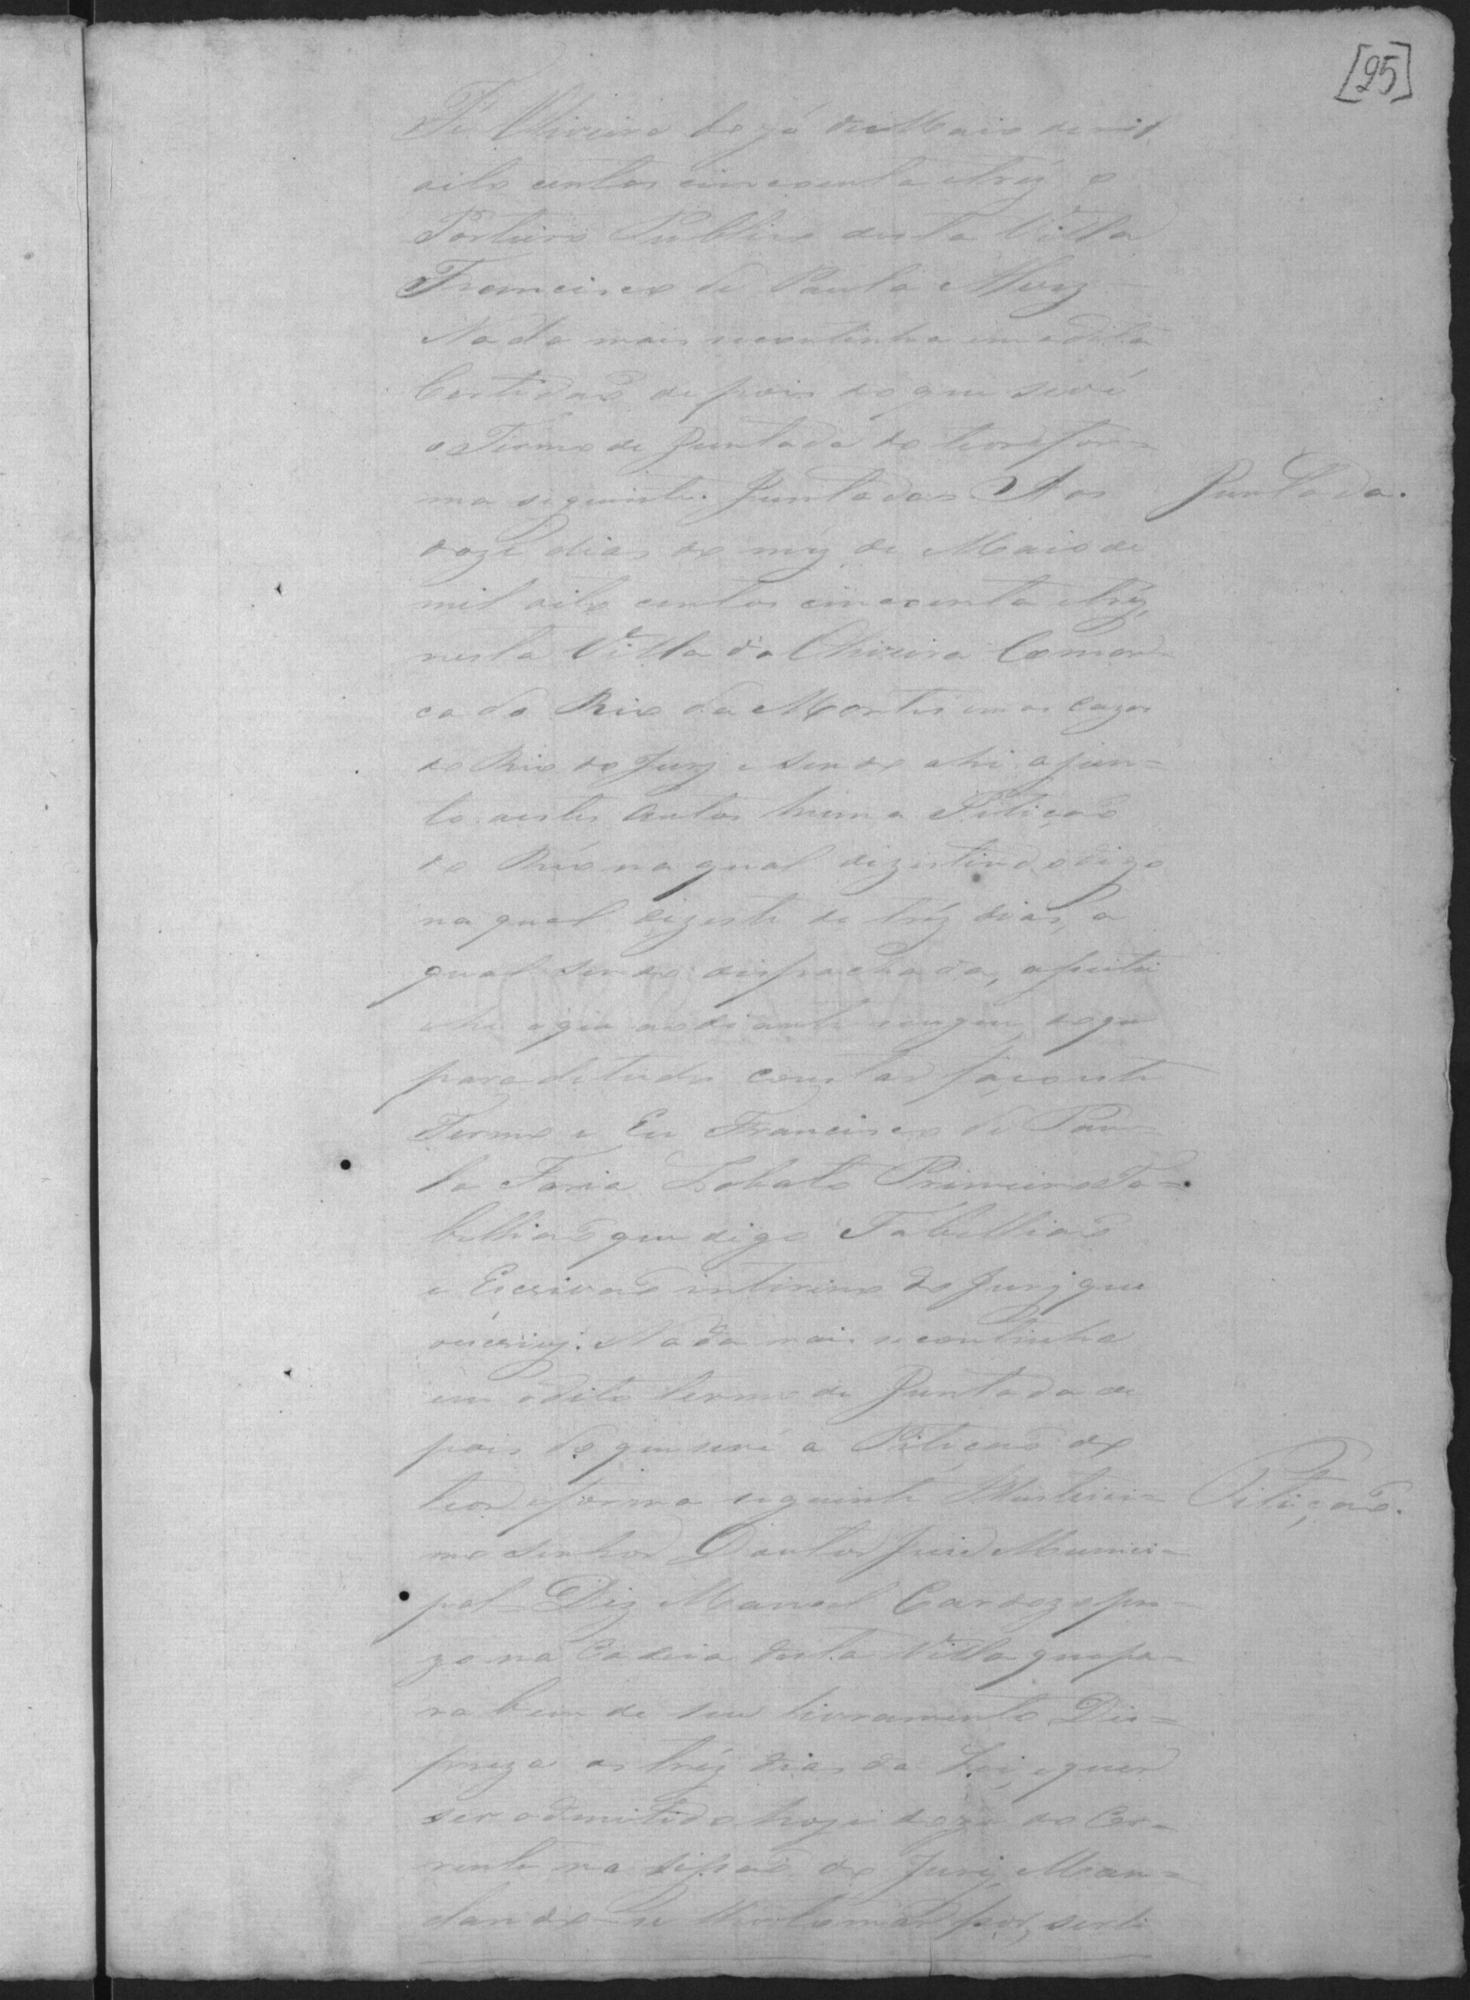 [25]
Fé Oliveira doze de Maio de mil
oito centos cincoenta e tres o
Porteiro Publico desta Villa
Francisco de Paula Muz
Nada mais se continha em a dita
Certidaõ depois do que se vé
o Termo de Juntada do theor e for=
ma seguinte. Juntada. Aos
Juntada.
doze dias do mez de Maio de
mil oito centos cincoenta e tres,
nesta Villa da Oliveira Comar=
ca do Rio das Mortes em as cazas
do Jury e sendo ahi ajun=
to a estes Autos huma Petiçaõ
do Réo na qual dizestindo digo
na qual dizeste de tres dias, a
qual sendo despachada, ajuntei
he a que ao diante segue, do que
para de tudo constar faço este
Termo e Eu Francisco de Pau=
la Faria Lobato Primeiro Ta=
belliaõ que digo Tabelliaõ
e Escrivaõ interino do Jury que
o escrivi. Nada mais se continha
em o dito termo de Juntada de
pois do que se vé a Petiçaõ do
theor e forma seguinte Illustrissi=
Petiçaõ.
mo Senhor Doutor Juiz Munici=
pal = Diz Manoel Cardozo pre=
zo na Cadeia desta Villa que pa=
ra bem de seu livramento Des=
preza os tres dias da Lei, e quer
ser admitido hoje doze do Cor=
rente na sessaõ do Jury, Man=
dando-se